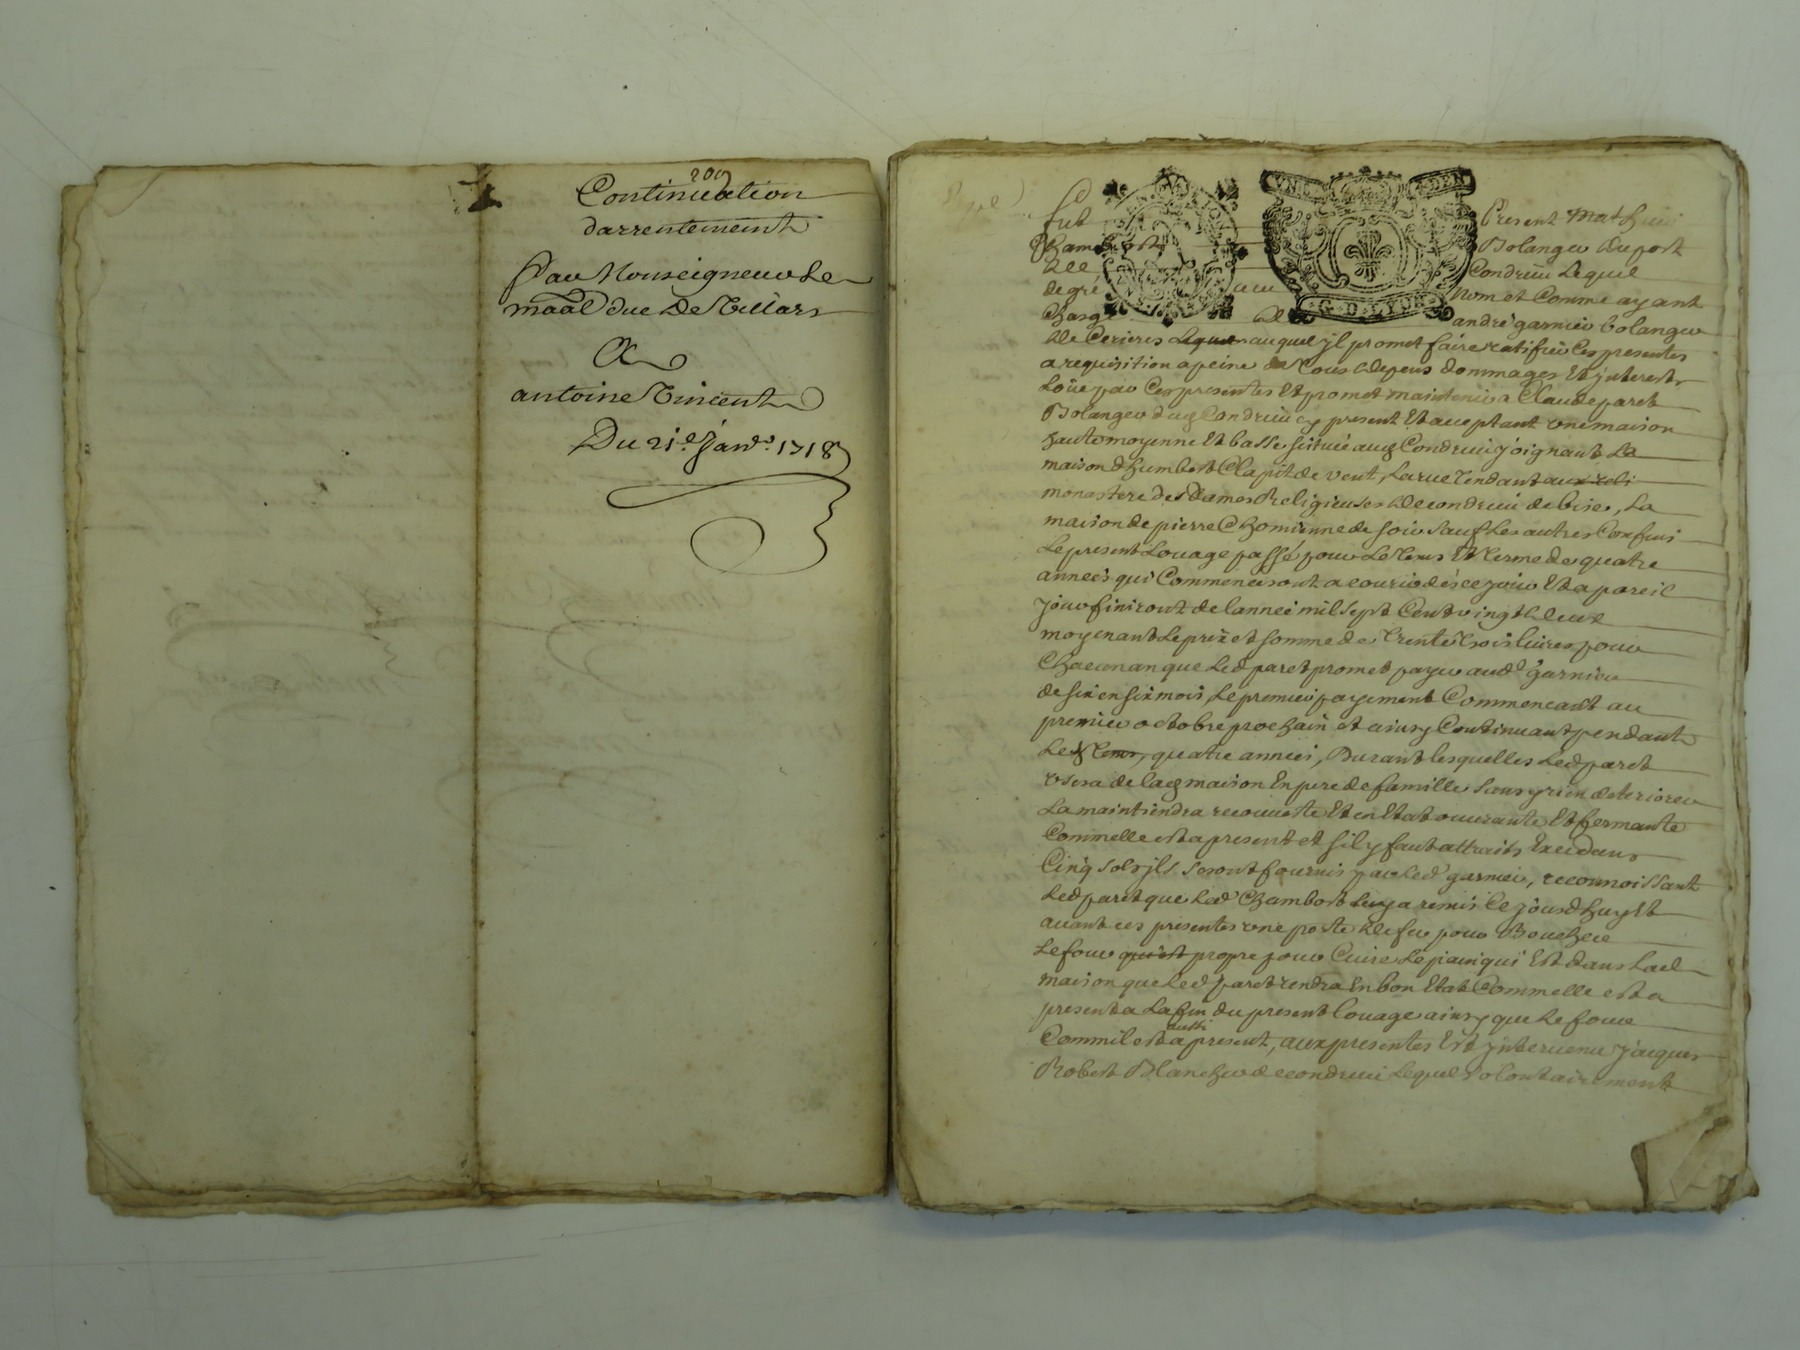 209
Continuation
darrentement
Par Monseigneur Le
maal duc De Villars
A
antoine Vincent
Du 21e Janv. 1718
fut Present Mathieu
Chambost Bolanger du port
de Condrieu Lequel
de gré nom et Comme ayant
Charge de andré garnier bolanger
de Cerieres Lequel auquel jl promet faire ratifier les presentes
a requisition a peine de tous depens dommages Et jnterests
Loüe par Ces presentes Et promet maintenir a Claude paret
Bolanger dud Condrieu cy present Et acceptant vne maison
haute moyenne Et basse scituée aud Condrieu joignant La
maison dhumbert Clapit de vent, La rue tendant aux reli
monastere des Dames Religieuses de condrieu de bise, La
maison de pierre Chomienne de soir sauf Les autres Confins
Le present Louage passé pour Le tems Et terme de quatre
années qui Commenceront a courir dés ce jour Et a pareil
jour finiront de lannee mil sept Cent vingt deux
moyenant Le prix et somme de trente trois livres pour
Chacun an que Led paret promet payer aud garnier
de six en six mois, Le premier payement Commencant au
premier octobre prochain et ainsy Continuant pendant
Led tems, quatre années, Durant lesquelles Led paret
vsera de lad maison En pere de famille sans y rien deteriorer
La maintiendra recouverte Et en Etat ouvrante Et fermante
Comme elle est a present et sil y faut attraits Excedans
Cinq sols jls seront fournis par Led garnier, reconnoissant
Led paret que Led Chambost luy a remis Ce jourdhuy Et
avant ces presentes vne porte de fer pour Boucher
Le four qui est propre pour Cuire Le pain qui Est dans Lad
maison que Led paret rendra En bon Etat Comme elle est a
present a La fin du present louage ainsy que Le four
aussi
Comme il est a present, aux presentes Est jntervenu jacques
Robert Blancher de condrieu Lequel volontairement